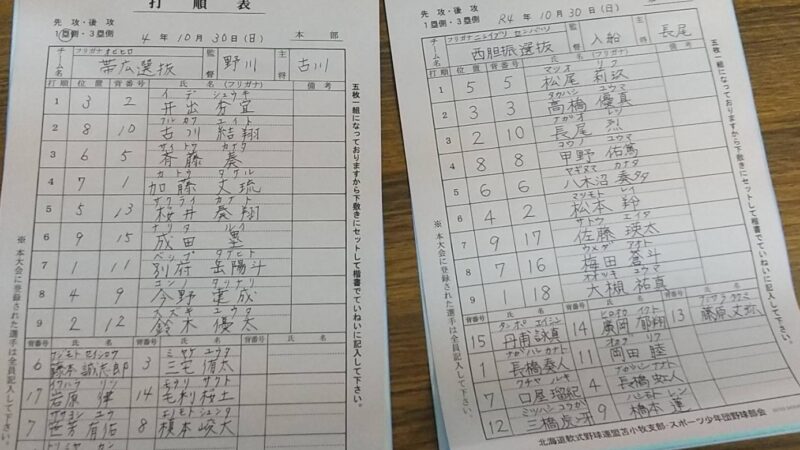 打順表
先攻・後攻
1塁側・3塁側
4年10月30日(日) 本部
チーム名 フリガナ オビヒロ 帯広選抜 監督 野川 主将 古川
打順 位置 背番号 氏名(フリガナ) 備考
1 3 2 井出
2 8 10 フルカワ エイト 古川 結翔
3 6 5 サイトウ カナタ 斉藤 奏
4 7 1 カトウ タケル 加藤 丈琉
5 5 13 サクライ カナト 桜井 奏翔
6 9 15 ナリタ ルイ 成田 塁
7 1 11 ベップ タケヒト 別府 岳陽斗
8 4 9 コンノ タツナリ 今野 達成
9 2 12 スズキ ユウタ 鈴木 優太
背番号 氏名 背番号 氏名
6 フジモト セイシロウ 藤本 誠志郎 3 ミヤケ ユウタ 三宅 侑太
17 イワハラ リツ 岩原 律 14 モウリ サクト 毛利 桜土
7 ササヨシ ユウ 笹芳 有佑 8 エノモト シュンタ 榎本 峻大
五枚一組になっておりますから下敷きにセットして楷書でていねいに記入して下さい。
※本大会に登録された選手は全員記入して下さい。
先攻・後攻
1塁側・3塁側
R4年10月30日(日)
チーム名 フリガナ ニシイブリ センバツ 西胆振選抜 監督 入船 主将 長尾
打順 位置 背番号 氏名(フリガナ) 備考
1 5 5 マツオ リク 松尾 莉玖
2 3 3 タカハシ ユウマ 高橋 優真
3 2 10 ナガオ レツ 長尾 烈
4 8 8 コウノ ユウマ 甲野 佑篤
5 6 6 ヤギヌマ カナタ 八木沼 奏多
6 4 2 マツモト レイ 松本 羚
7 9 17 サトウ エイタ 佐藤 瑛太
8 7 16 ウメダ アオト 梅田 蒼斗
9 1 18 オオツキ ユウマ 大槻 祐真
背番号 氏名 背番号 氏名 背番号 氏名
15 タンポ エイシン 丹甫 詠真 14 ヒロオカ イクト 廣岡 郁翔 13 藤原
1 ナガハシ カナト 長橋 奏人 11 オカダ リク 岡田 睦
7 クチヤ ルキ 口屋 瑠紀 4 長橋
12 三橋 9 ハシモト レン 橋本 蓮
五枚一組になっておりますから下敷きにセットして楷書でていねいに記入して下さい。
※本大会に登録された選手は全員記入して下さい。
北海道軟式野球連盟苫小牧支部・スポーツ少年団野球部会